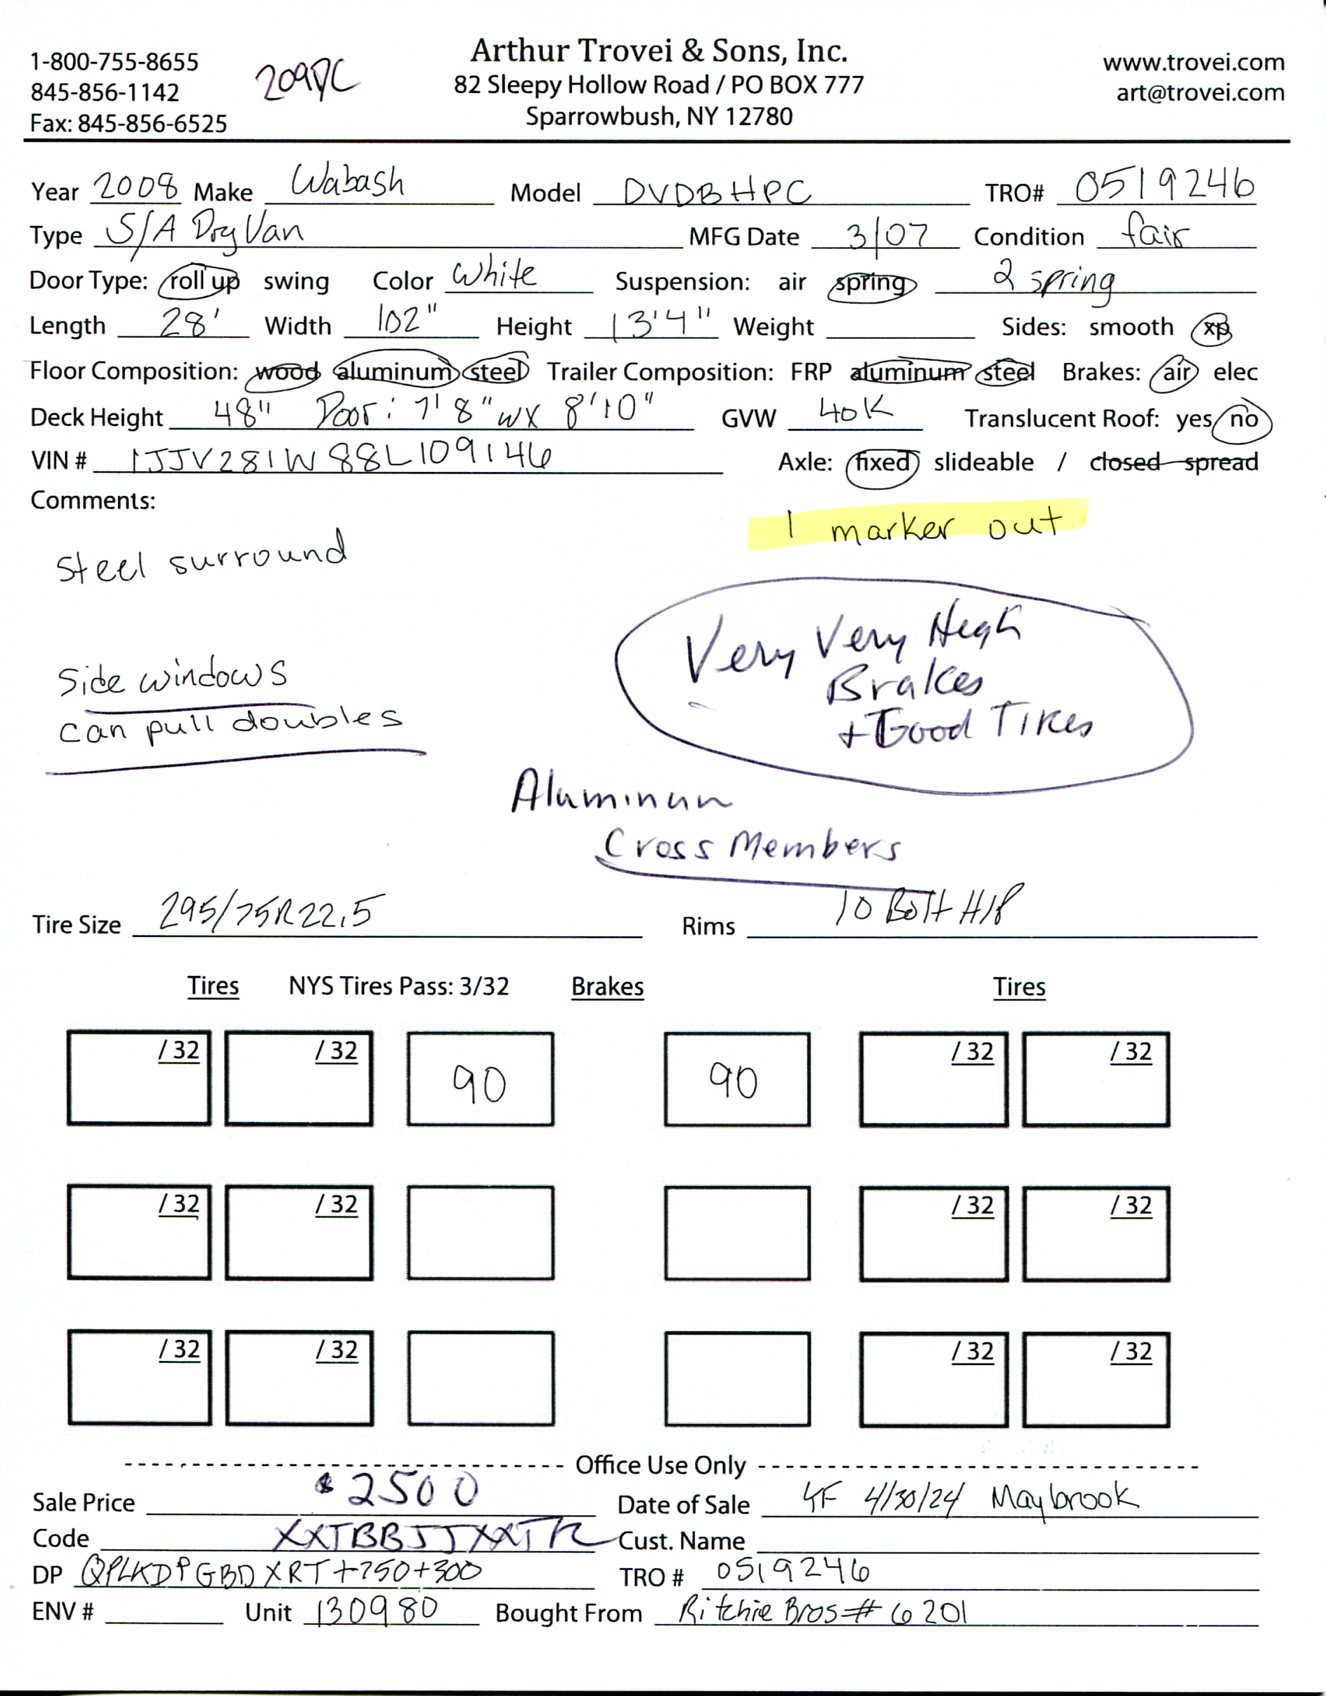 Arthur Trovei & Sons, Inc.
82 Sleepy Hollow Road / PO BOX 777
Sparrowbush, NY 12780
1-800-755-8655
845-856-1142
Fax: 845-856-6525
www.trovei.com
art@trovei.com
Year 2008 Make Wabash Model DVDBHPC TRO# 0519246
Type S/A Dry Van MFG Date 3/07 Condition fair
Door Type: roll up swing Color White Suspension: air spring 2 spring
Length 28' Width 102" Height 13'4" Weight Sides: smooth xp
Floor Composition: wood aluminum steel Trailer Composition: FRP aluminum steel Brakes: air elec
Deck Height 48" Door: 7'8"w x 8'10" GVW 40K Translucent Roof: yes no
VIN # 1JJV281W88L109146 Axle: fixed slideable / closed spread
Comments:
1 marker out
steel surround
Very Very High
Brakes
+ Good Tires
Side windows
can pull doubles
Aluminum
Cross Members
Tire Size 295/75R22.5 Rims 10 Bolt H/P
Tires NYS Tires Pass: 3/32 Brakes Tires
/32 /32 90 90 /32 /32
/32 /32 /32 /32
/32 /32 /32 /32
Office Use Only
Sale Price $2500 Date of Sale 4/30/24 Maybrook
Code XXTBBJJXXTR Cust. Name
DP QPLKDPGBDXRT+750+300 TRO # 0519246
ENV # Unit 130980 Bought From Ritchie Bros # 6201